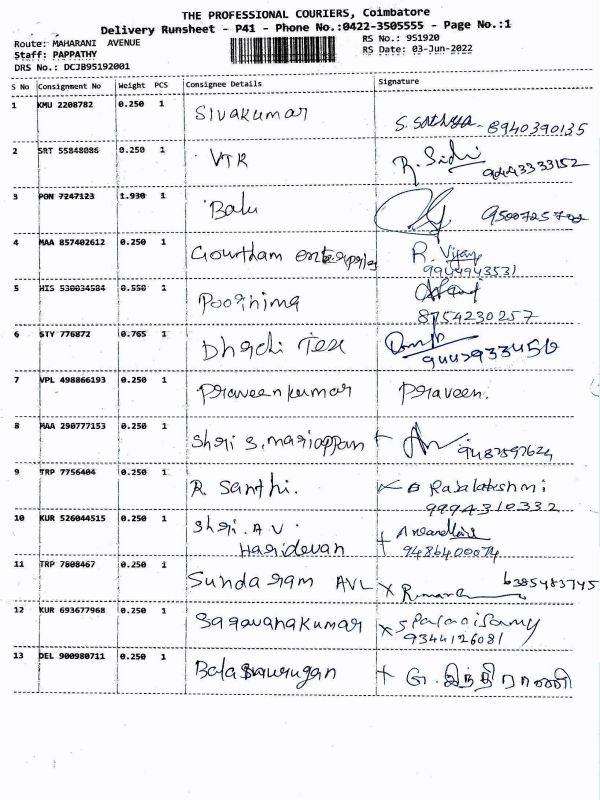 THE PROFESSIONAL COURIERS, Coimbatore
Delivery Runsheet - P41 - Phone No.:0422-3505555 - Page No.:1
Route: MAHARANI AVENUE
RS No.: 951920
Staff: PAPPATHY
RS Date: 03-Jun-2022
DRS No.: DCJB95192001
S No Consignment No Weight PCS Consignee Details Signature
1 KMU 2208782 0.250 1 Sivakumar S. Sathya - 8940390135
2 SRT 55848086 0.250 1 VTR 9443333152
3 PON 7247123 1.930 1 Balu
4 MAA 857402612 0.250 1 Gowtham R. Vijay
9944943531
5 HIS 530034584 0.550 1 Poornima
8754230257
6 STY 776872 0.765 1 Tex
7 VPL 498866193 0.250 1 Praveen kumar Praveen.
8 MAA 290777153 0.250 1 Shri S. mariappan 9487597624
9 TRP 7756404 0.250 1 R. Santhi. Rajalakshmi
9994310332
10 KUR 526044515 0.250 1 Shri. A V.
Haridevan 9486400074
11 TRP 7808467 0.250 1 Sundaram AVL 6385483745
12 KUR 693677968 0.250 1 Saravanakumar S Palanisamy
9344126081
13 DEL 900980711 0.250 1 Balamurugan G. இந்திராணி